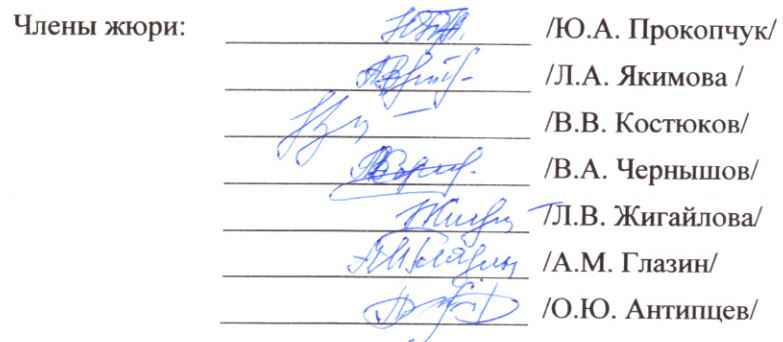 Члены жюри: /Ю.А. Прокопчук/
/Л.А. Якимова /
/В.В. Костюков/
/В.А. Чернышов/
/Л.В. Жигайлова/
/А.М. Глазин/
/О.Ю. Антипцев/